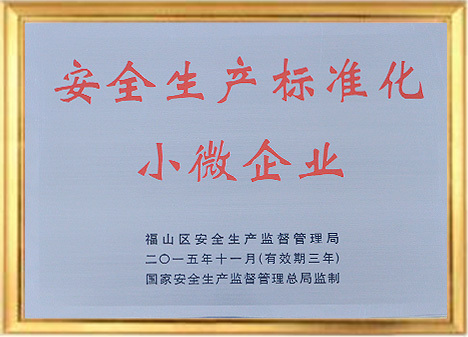 安全生产标准化
小微企业
福山区安全生产监督管理局
二〇一五年十一月(有效期三年)
国家安全生产监督管理总局监制